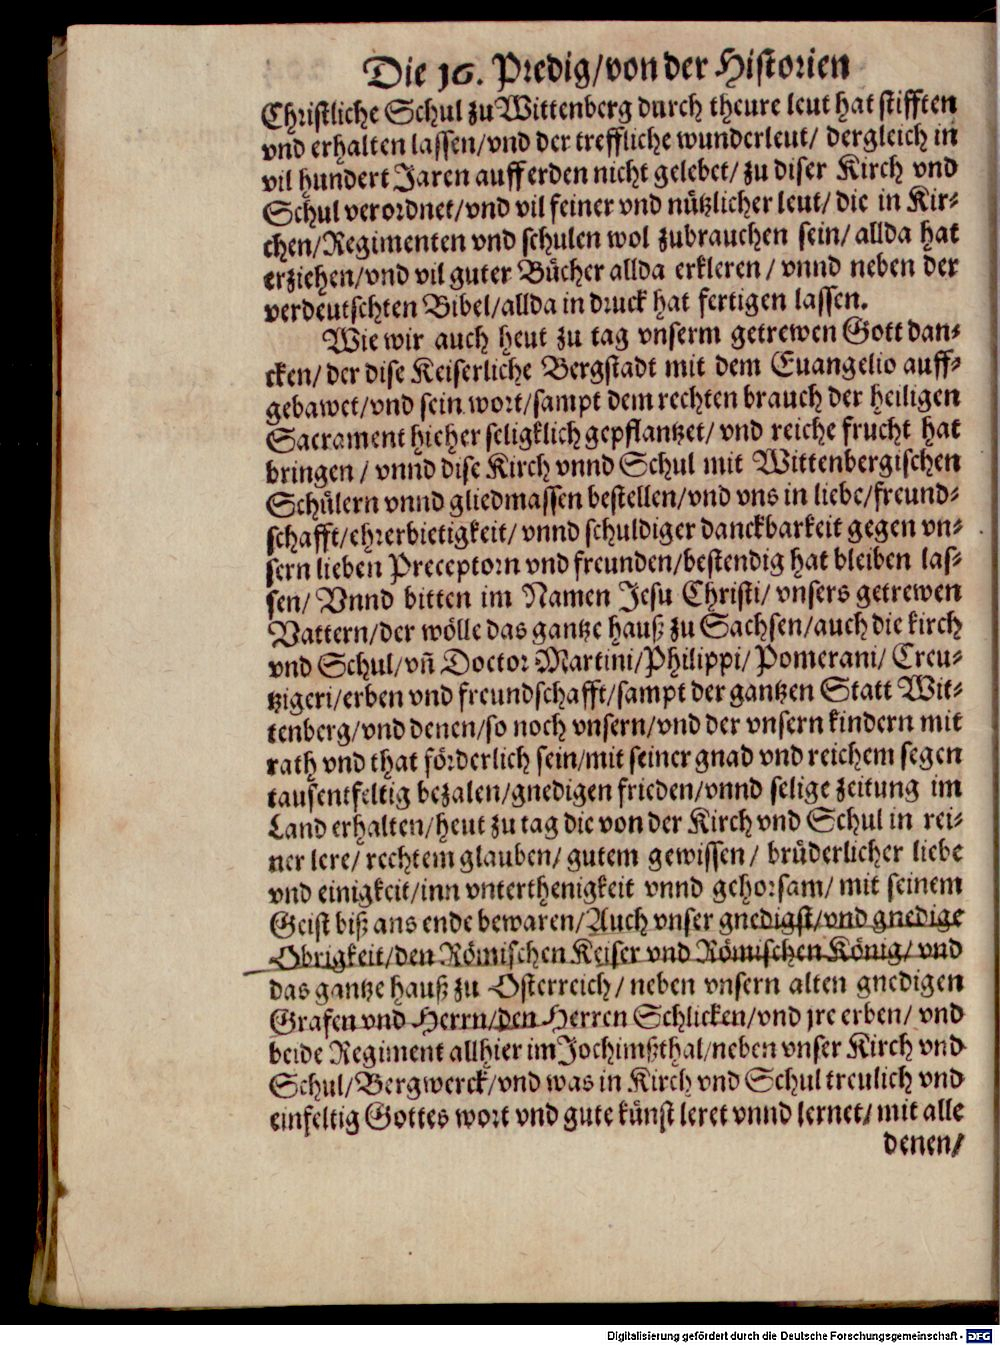 Die 16. Predig/von der Historien
Christliche Schul zu Wittenberg durch theure leut hat stifften
vnd erhalten lassen/vnd der treffliche wunderleut/ dergleich in
vil hundert Jaren auff erden nicht gelebet/ zu diser Kirch vnd
Schul verordnet/vnd vil feiner vnd nützlicher leut/ die in Kir-
chen/Regimenten vnd schulen wol zubrauchen sein/ allda hat
erziehen/vnd vil guter Bücher allda erkleren/ vnnd neben der
verdeutschten Bibel/allda in druck hat fertigen lassen.
Wie wir auch heut zu tag vnserm getrewen Gott dan-
cken/ der dise Keiserliche Bergstadt mit dem Euangelio auff-
gebawet/vnd sein wort/sampt dem rechten brauch der heiligen
Sacrament hieher seligklich gepflantzet/ vnd reiche frucht hat
bringen/ vnnd dise Kirch vnnd Schul mit Wittenbergischen
Schülern vnnd gliedmassen bestellen/vnd vns in liebe/freund-
schafft/ehrerbietigkeit/ vnnd schuldiger danckbarkeit gegen vn-
sern lieben Preceptorn vnd freunden/bestendig hat bleiben las-
sen/ Vnnd bitten im Namen Jesu Christi/ vnsers getrewen
Vattern/der wölle das gantze hauß zu Sachsen/auch die kirch
vnd Schul/vn̄ Doctor Martini/Philippi/ Pomerani/ Creu-
tzigeri/erben vnd freundschafft/sampt der gantzen Statt Wit-
tenberg/vnd denen/so noch vnsern/vnd der vnsern kindern mit
rath vnd that förderlich sein/mit seiner gnad vnd reichem segen
tausentfeltig bezalen/gnedigen frieden/vnnd selige zeitung im
Land erhalten/heut zu tag die von der Kirch vnd Schul in rei-
ner lere/ rechtem glauben/ gutem gewissen/ brüderlicher liebe
vnd einigkeit/inn vnterthenigkeit vnnd gehorsam/ mit seinem
Geist biß ans ende bewaren/Auch vnser gnedigst/vnd gnedige
Obrigkeit/den Römischen Keiser vnd Römischen König/ vnd
das gantze hauß zu Osterreich/ neben vnsern alten gnedigen
Grafen vnd Herrn/den Herren Schlicken/vnd jre erben/ vnd
beide Regiment allhier im Jochimßthal/neben vnser Kirch vnd
Schul/Bergwerck/vnd was in Kirch vnd Schul treulich vnd
einfeltig Gottes wort vnd gute künst leret vnnd lernet/ mit alle
denen/
Digitalisierung gefördert durch die Deutsche Forschungsgemeinschaft - DFG